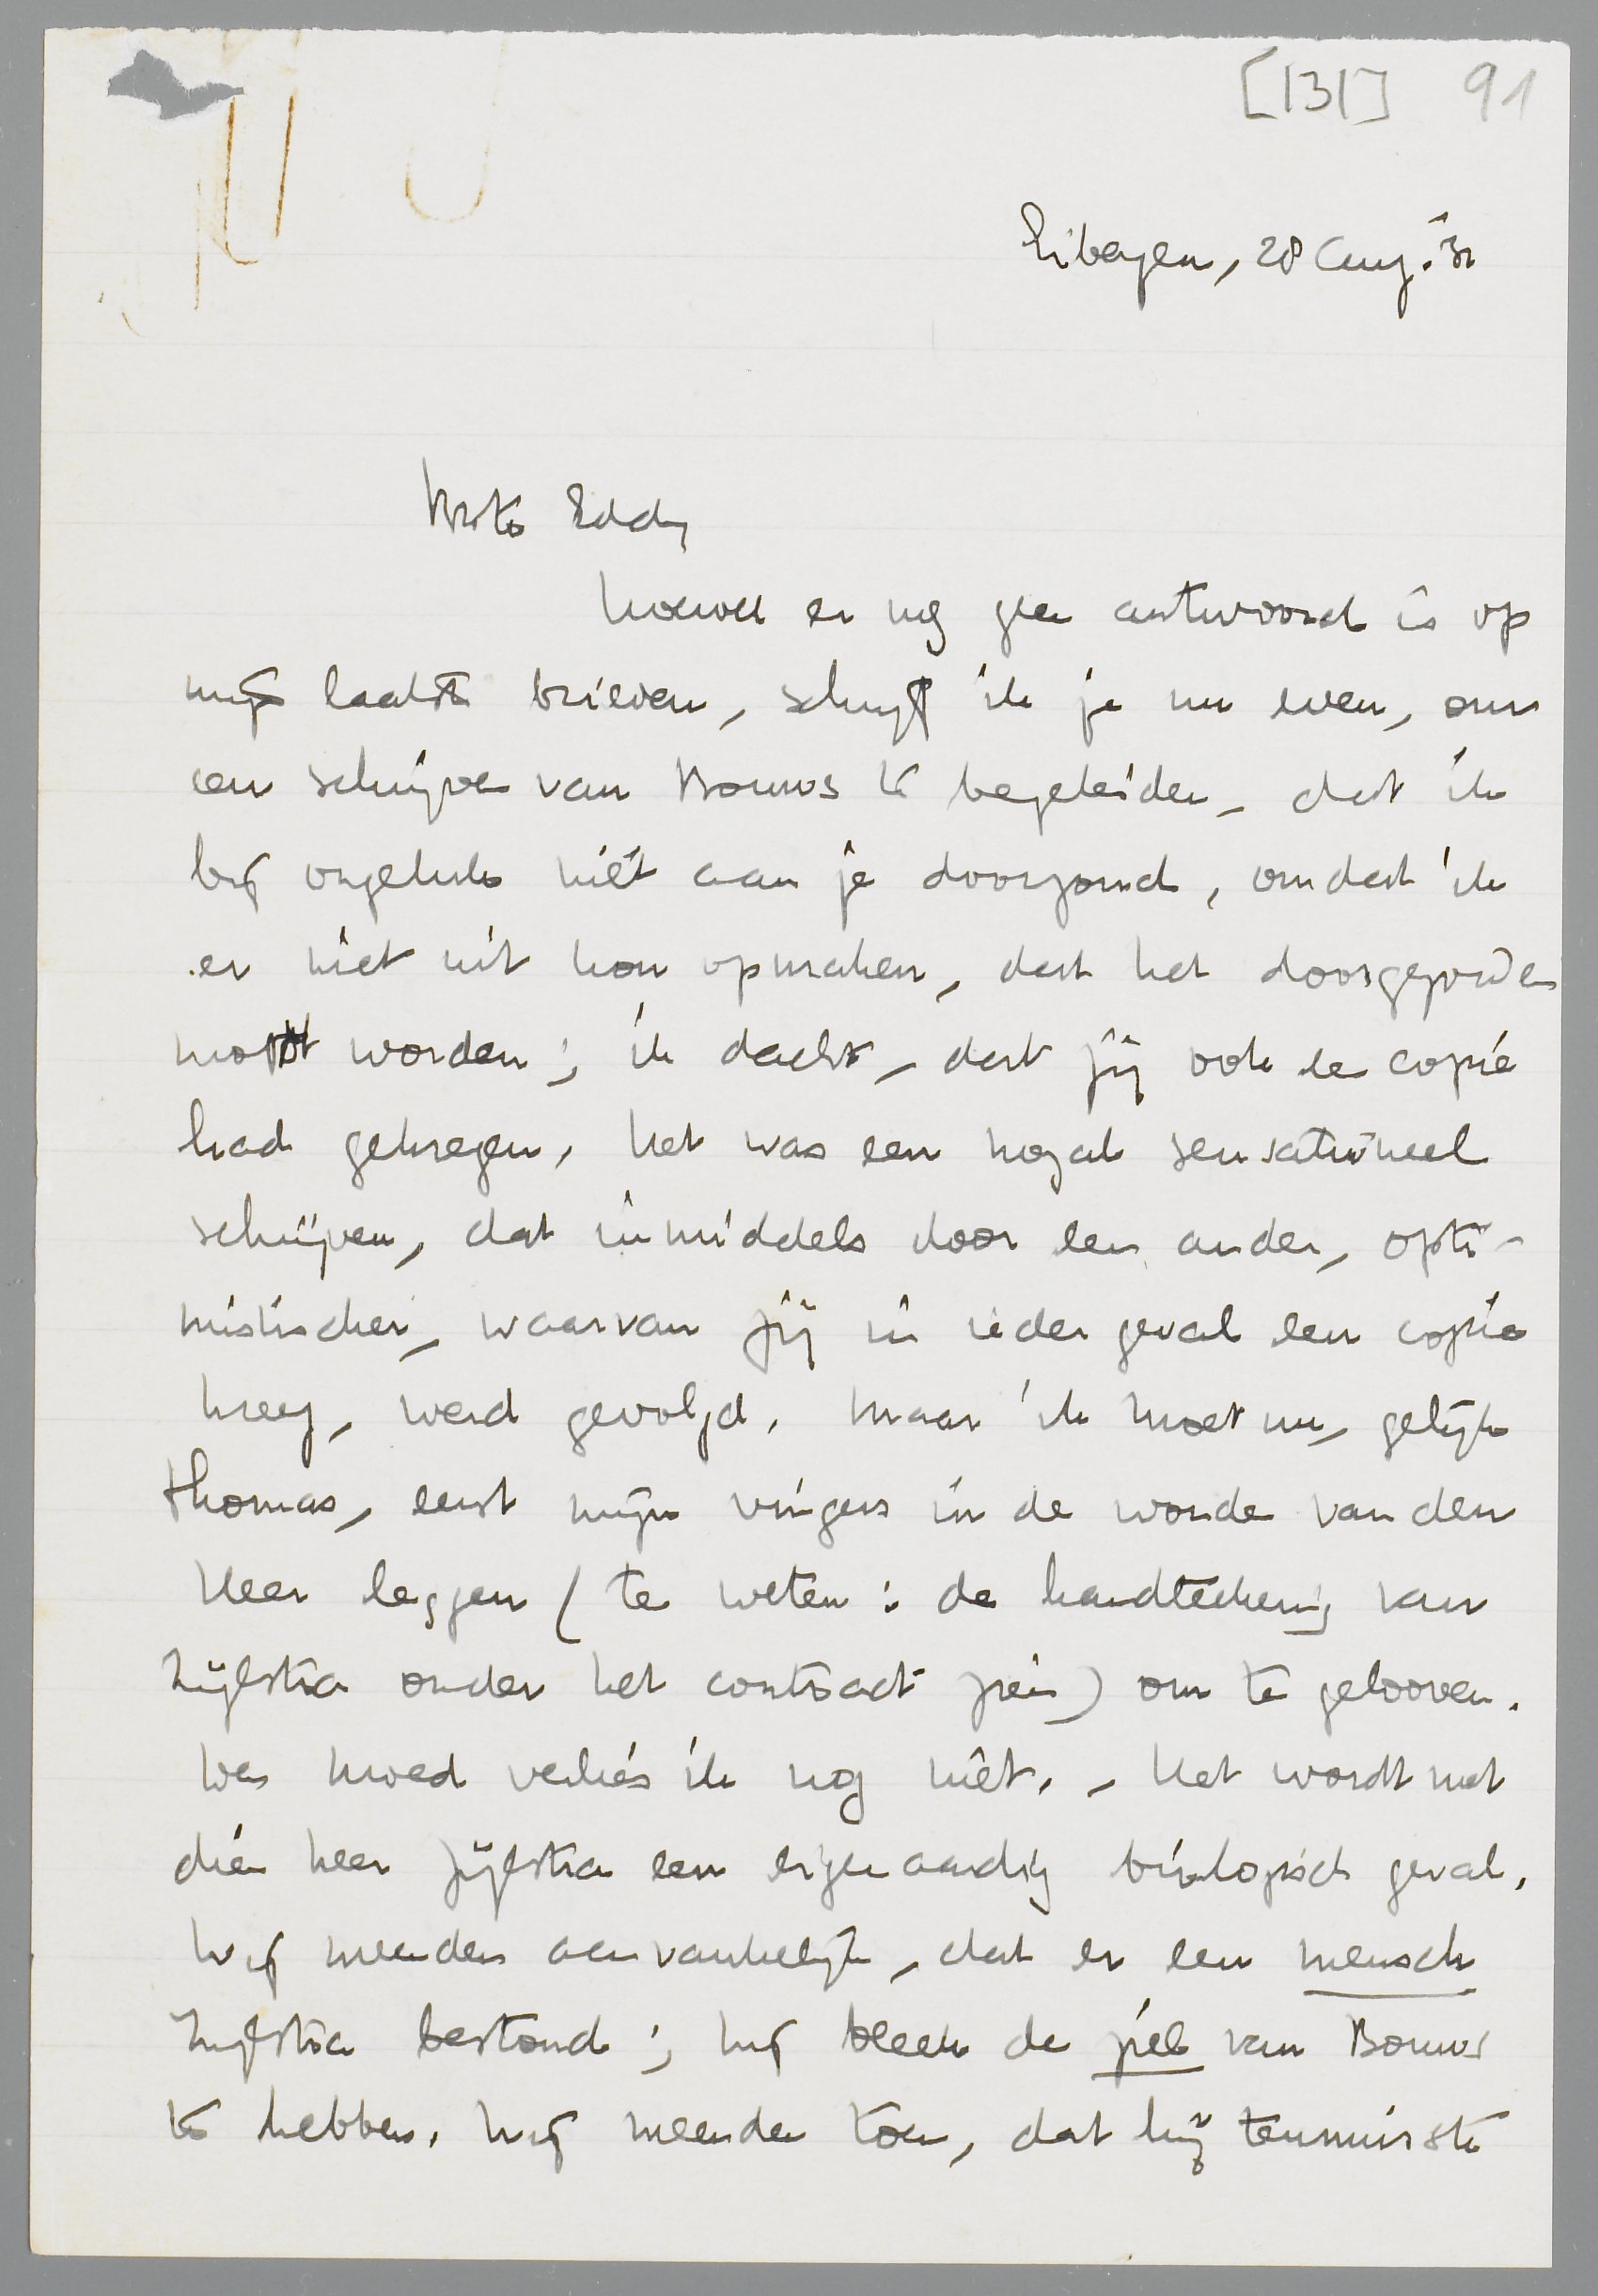 [131] 91
Eibergen, 28 Aug. '31
Beste Eddy
hoewel er nog geen antwoord is op
mijn laatste brieven, schrijf ik je nu even, om
een schrijven van Bouws te begeleiden, dat ik
bij ongeluk niét aan je doorzond, omdat ik
er niet uit kon opmaken, dat het doorgezonden
moest worden; ik dacht, dat jij ook een copie
had gekregen. Het was een nogal sensationeel
schrijven, dat inmiddels door een ander, opti-
mistischer, waarvan jij in ieder geval een copie
kreeg, werd gevolgd. Maar ik moet nu, gelijk
Thomas, eerst mijn vingers in de wonde van den
Heer leggen (te weten: de handteekening van
Zijlstra onder het contract zien) om te gelooven.
Den moed verlies ik nog niét. – Het wordt met
dien heer Zijlstra een eigenaardig biologisch geval.
Wij meenden aanvankelijk, dat er een mensch
Zijlstra bestond; hij bleek de ziel van Bouws
te hebben. Wij meenden toen, dat hij tenminste